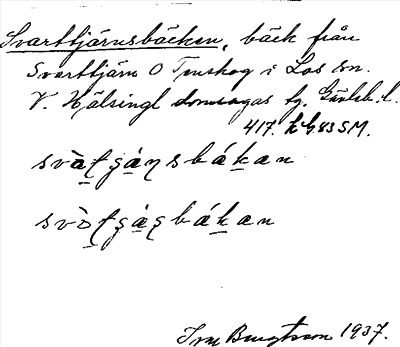 Svarttjärnsbäcken, bäck från
Svarttjärn O Tenskog i Los sn.
V. Hälsingl domsagas tg. Gävleb. l.
417. 83 SM.
svàt̠şá̠ņsbák̠an
svò̠tşá̠şbák̠an
Bengtsson 1937.